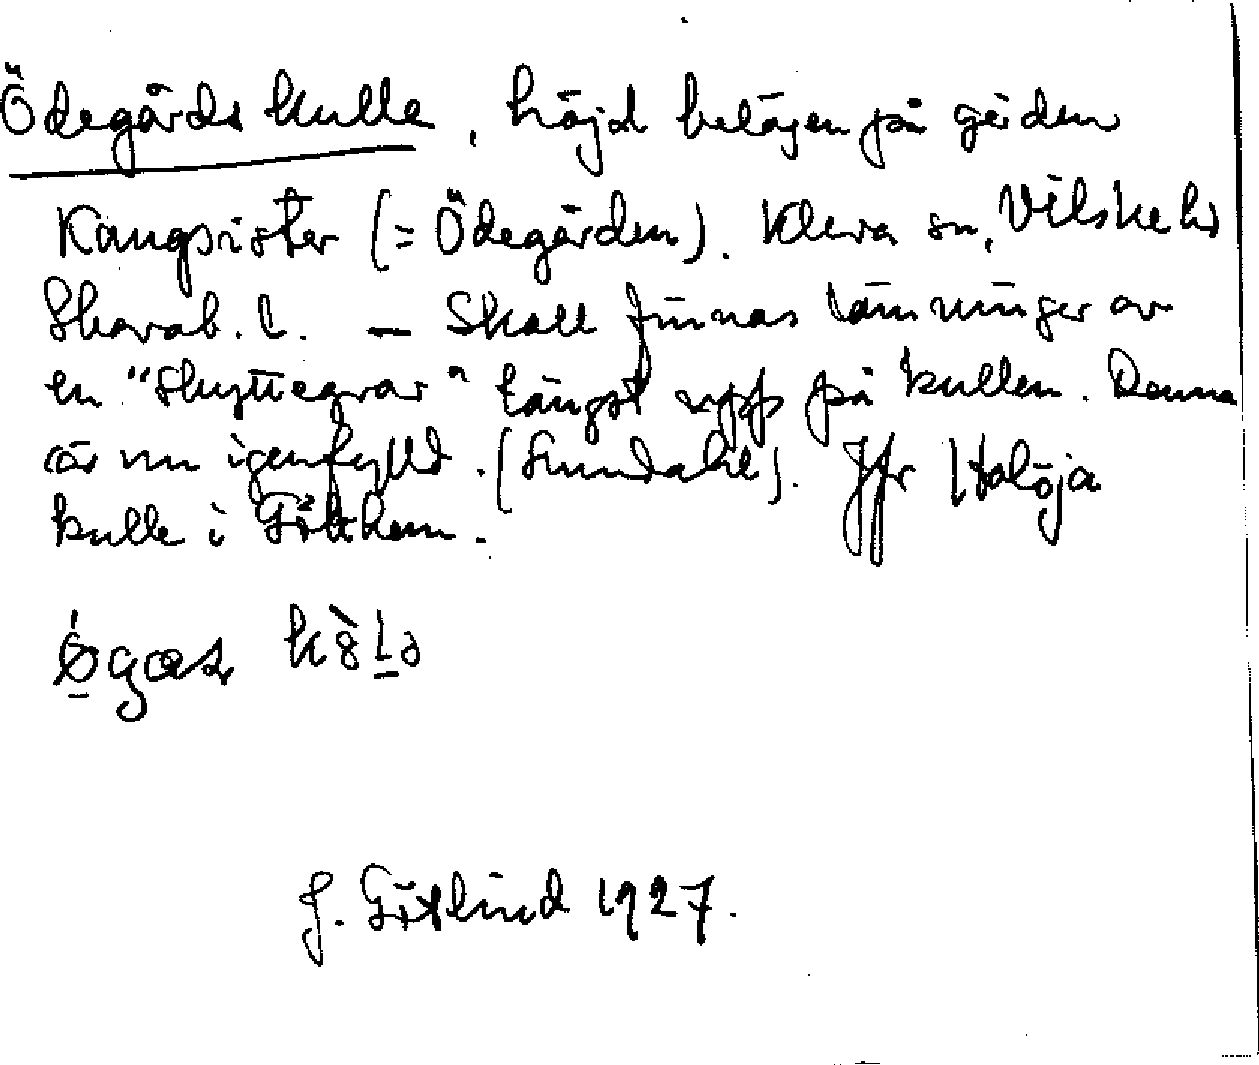 Ödegårds kulle, höjd belägen på gården
Kangsrister (= Ödegården). Kleva sn, Vilske hd
Skarab. l. – Skall finnas lämningar av
en "skyttegrav" längst upp på kullen. Denna
är nu igenfylld. (Sundahl). Jfr Halöja
kulle i Göteve.
J. Götlind 1927.